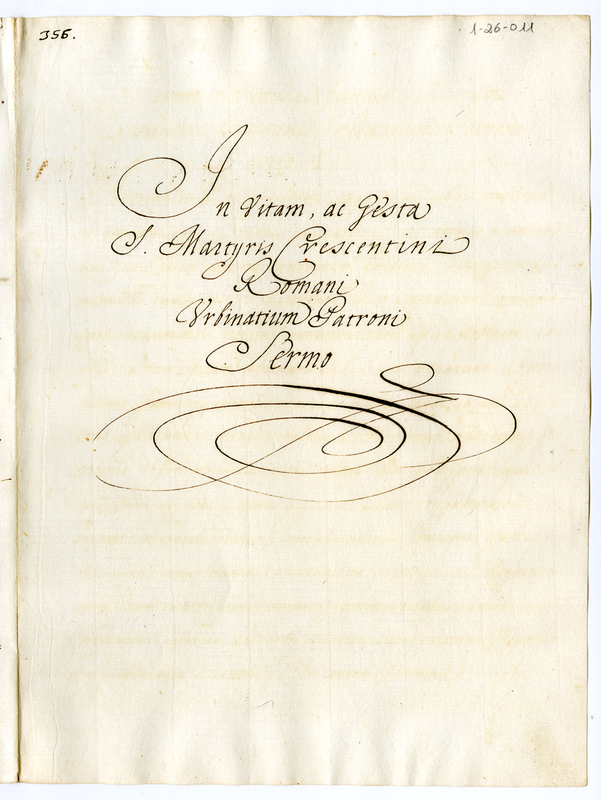 356.
1-26-011
In Vitam, ac Gesta
S. Martyris Crescentini
Romani
Urbinatium Patroni
Sermo